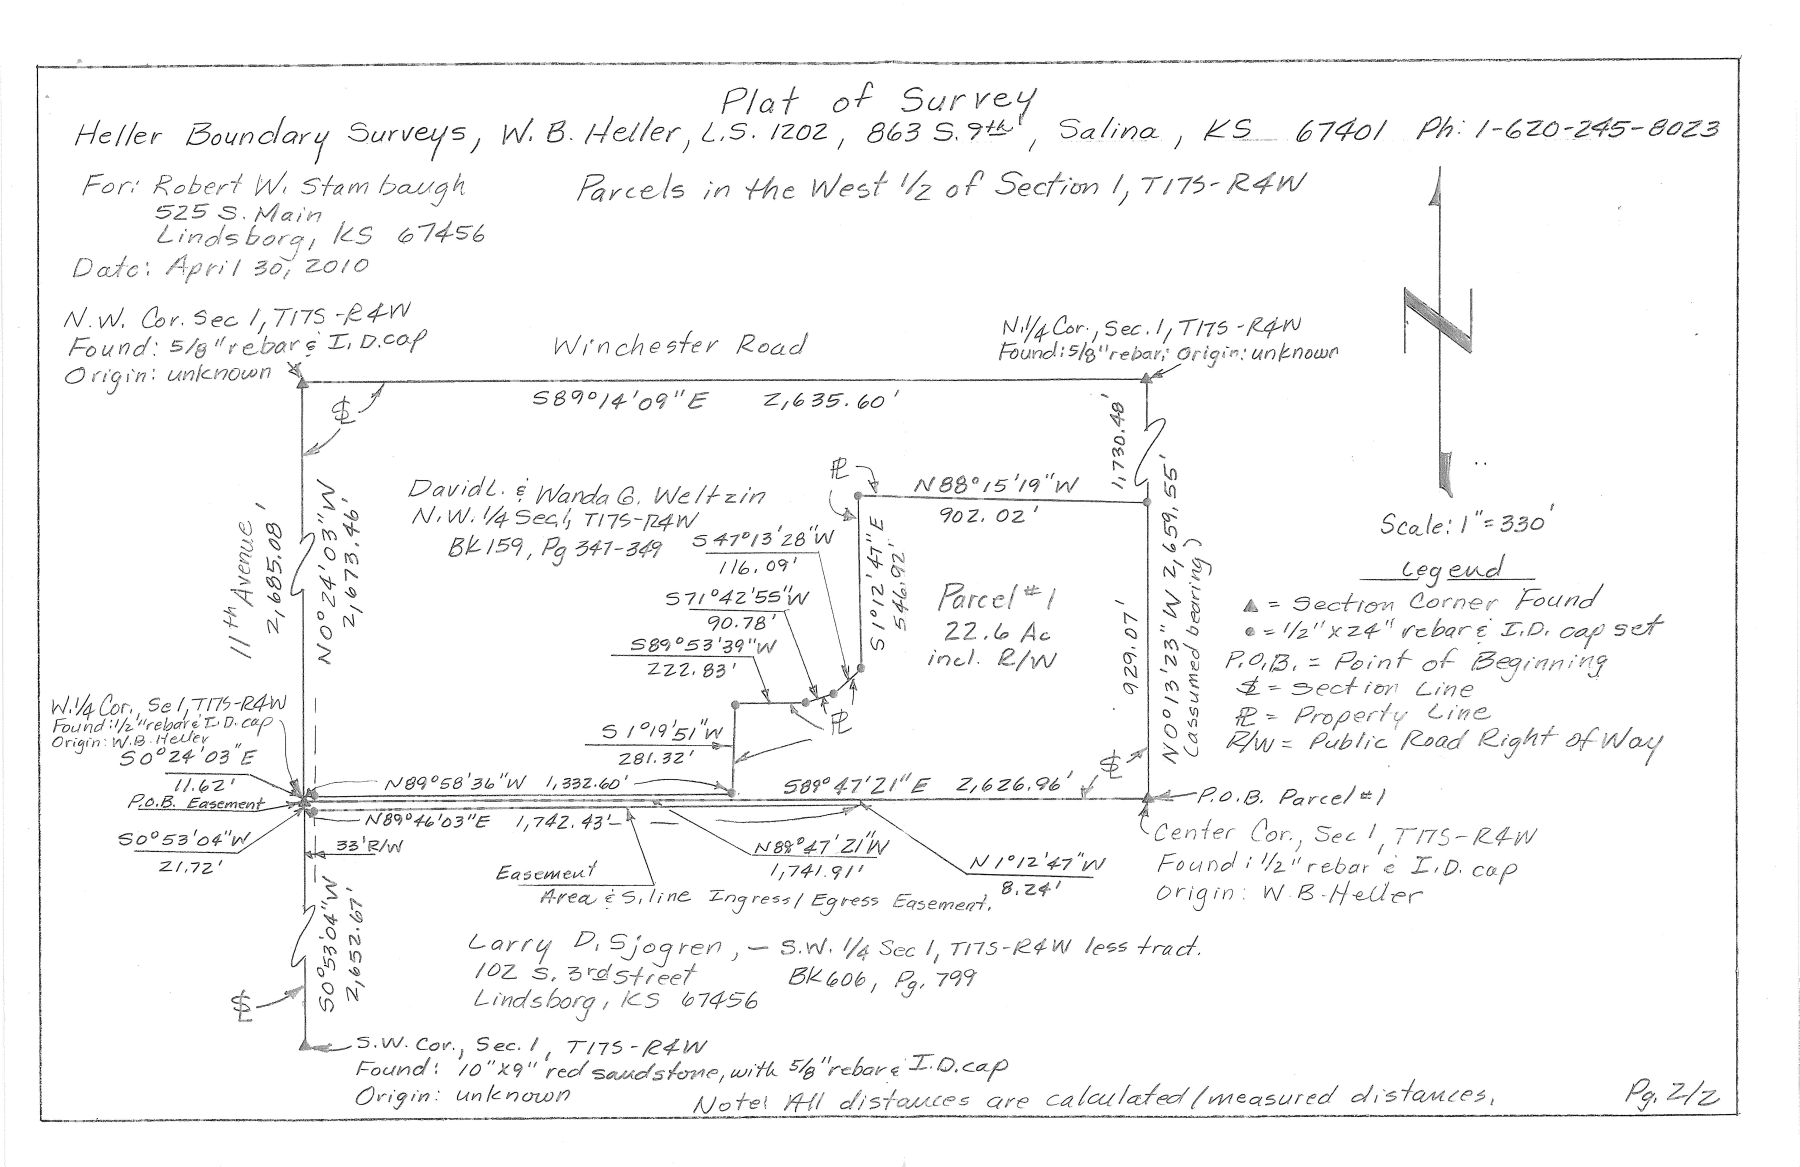 Plat of Survey
Heller Boundary Surveys, W. B. Heller, L.S. 1202, 863 S. 9th, Salina, KS 67401 Ph: 1-620-245-8023
For: Robert W. Stambaugh
525 S. Main
Lindsborg, KS 67456
Date: April 30, 2010
Parcels in the West 1/2 of Section 1, T17S-R4W
N.W. Cor. Sec 1, T17S-R4W
Found: 5/8" rebar & I.D. cap
Origin: unknown
Winchester Road
S89°14'09"E 2,635.60'
N.1/4 Cor., Sec. 1, T17S-R4W
Found: 5/8" rebar; Origin: unknown
N
Scale: 1"=330'
Legend
▲ = Section Corner Found
● = 1/2" x 24" rebar & I.D. cap set
P.O.B. = Point of Beginning
SL = Section Line
PL = Property Line
R/W = Public Road Right of Way
SL
11th Avenue
2,685.08'
N0°24'03"W
2,673.46'
David L. & Wanda G. Weltzin
N.W. 1/4 Sec 1, T17S-R4W
BK 159, Pg 347-349
PL
N88°15'19"W
902.02'
1,730.48'
929.07'
N0°13'23"W 2,659.55'
(assumed bearing)
S47°13'28"W
116.09'
S71°42'55"W
90.78'
S89°53'39"W
222.83'
S1°12'47"E
546.92'
Parcel #1
22.6 Ac
incl. R/W
PL
S1°19'51"W
281.32'
SL
W.1/4 Cor., Se 1, T17S-R4W
Found: 1/2" rebar & I.D. cap
Origin: W.B. Heller
S0°24'03"E
11.62'
P.O.B. Easement
S0°53'04"W
21.72'
N89°58'36"W 1,332.60'
S89°47'21"E 2,626.96'
P.O.B. Parcel #1
N89°46'03"E 1,742.43'
33' R/W
N89°47'21"W
1,741.91'
N1°12'47"W
8.24'
Center Cor., Sec 1, T17S-R4W
Found: 1/2" rebar & I.D. cap
Origin: W.B. Heller
Easement
Area & S. line Ingress/Egress Easement.
S0°53'04"W
2,652.67'
SL
Larry D. Sjogren, — S.W. 1/4 Sec 1, T17S-R4W less tract.
102 S. 3rd Street BK 606, Pg. 799
Lindsborg, KS 67456
S.W. Cor., Sec. 1, T17S-R4W
Found: 10"x9" red sandstone, with 5/8" rebar & I.D. cap
Origin: unknown
Note: All distances are calculated/measured distances.
Pg. 2/2